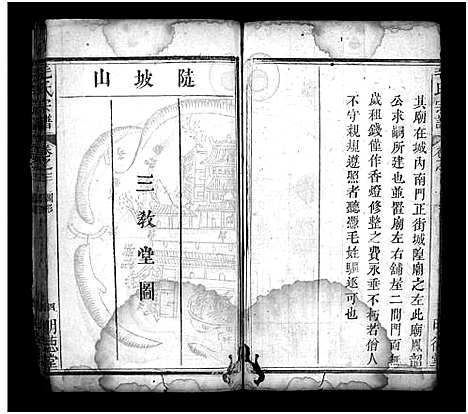 毛氏宗譜
其廟在城內南門正街城隍廟之左此廟鳳韶
公求嗣所建也並置廟左右鋪屋二間門面無
歲租錢僅作香燈修整之費永垂不朽若僧人
不守親規遵照者聽憑毛姓驅逐可也
陡坡山
三教堂圖
氏宗譜
卷之二
圖形
四
明德堂